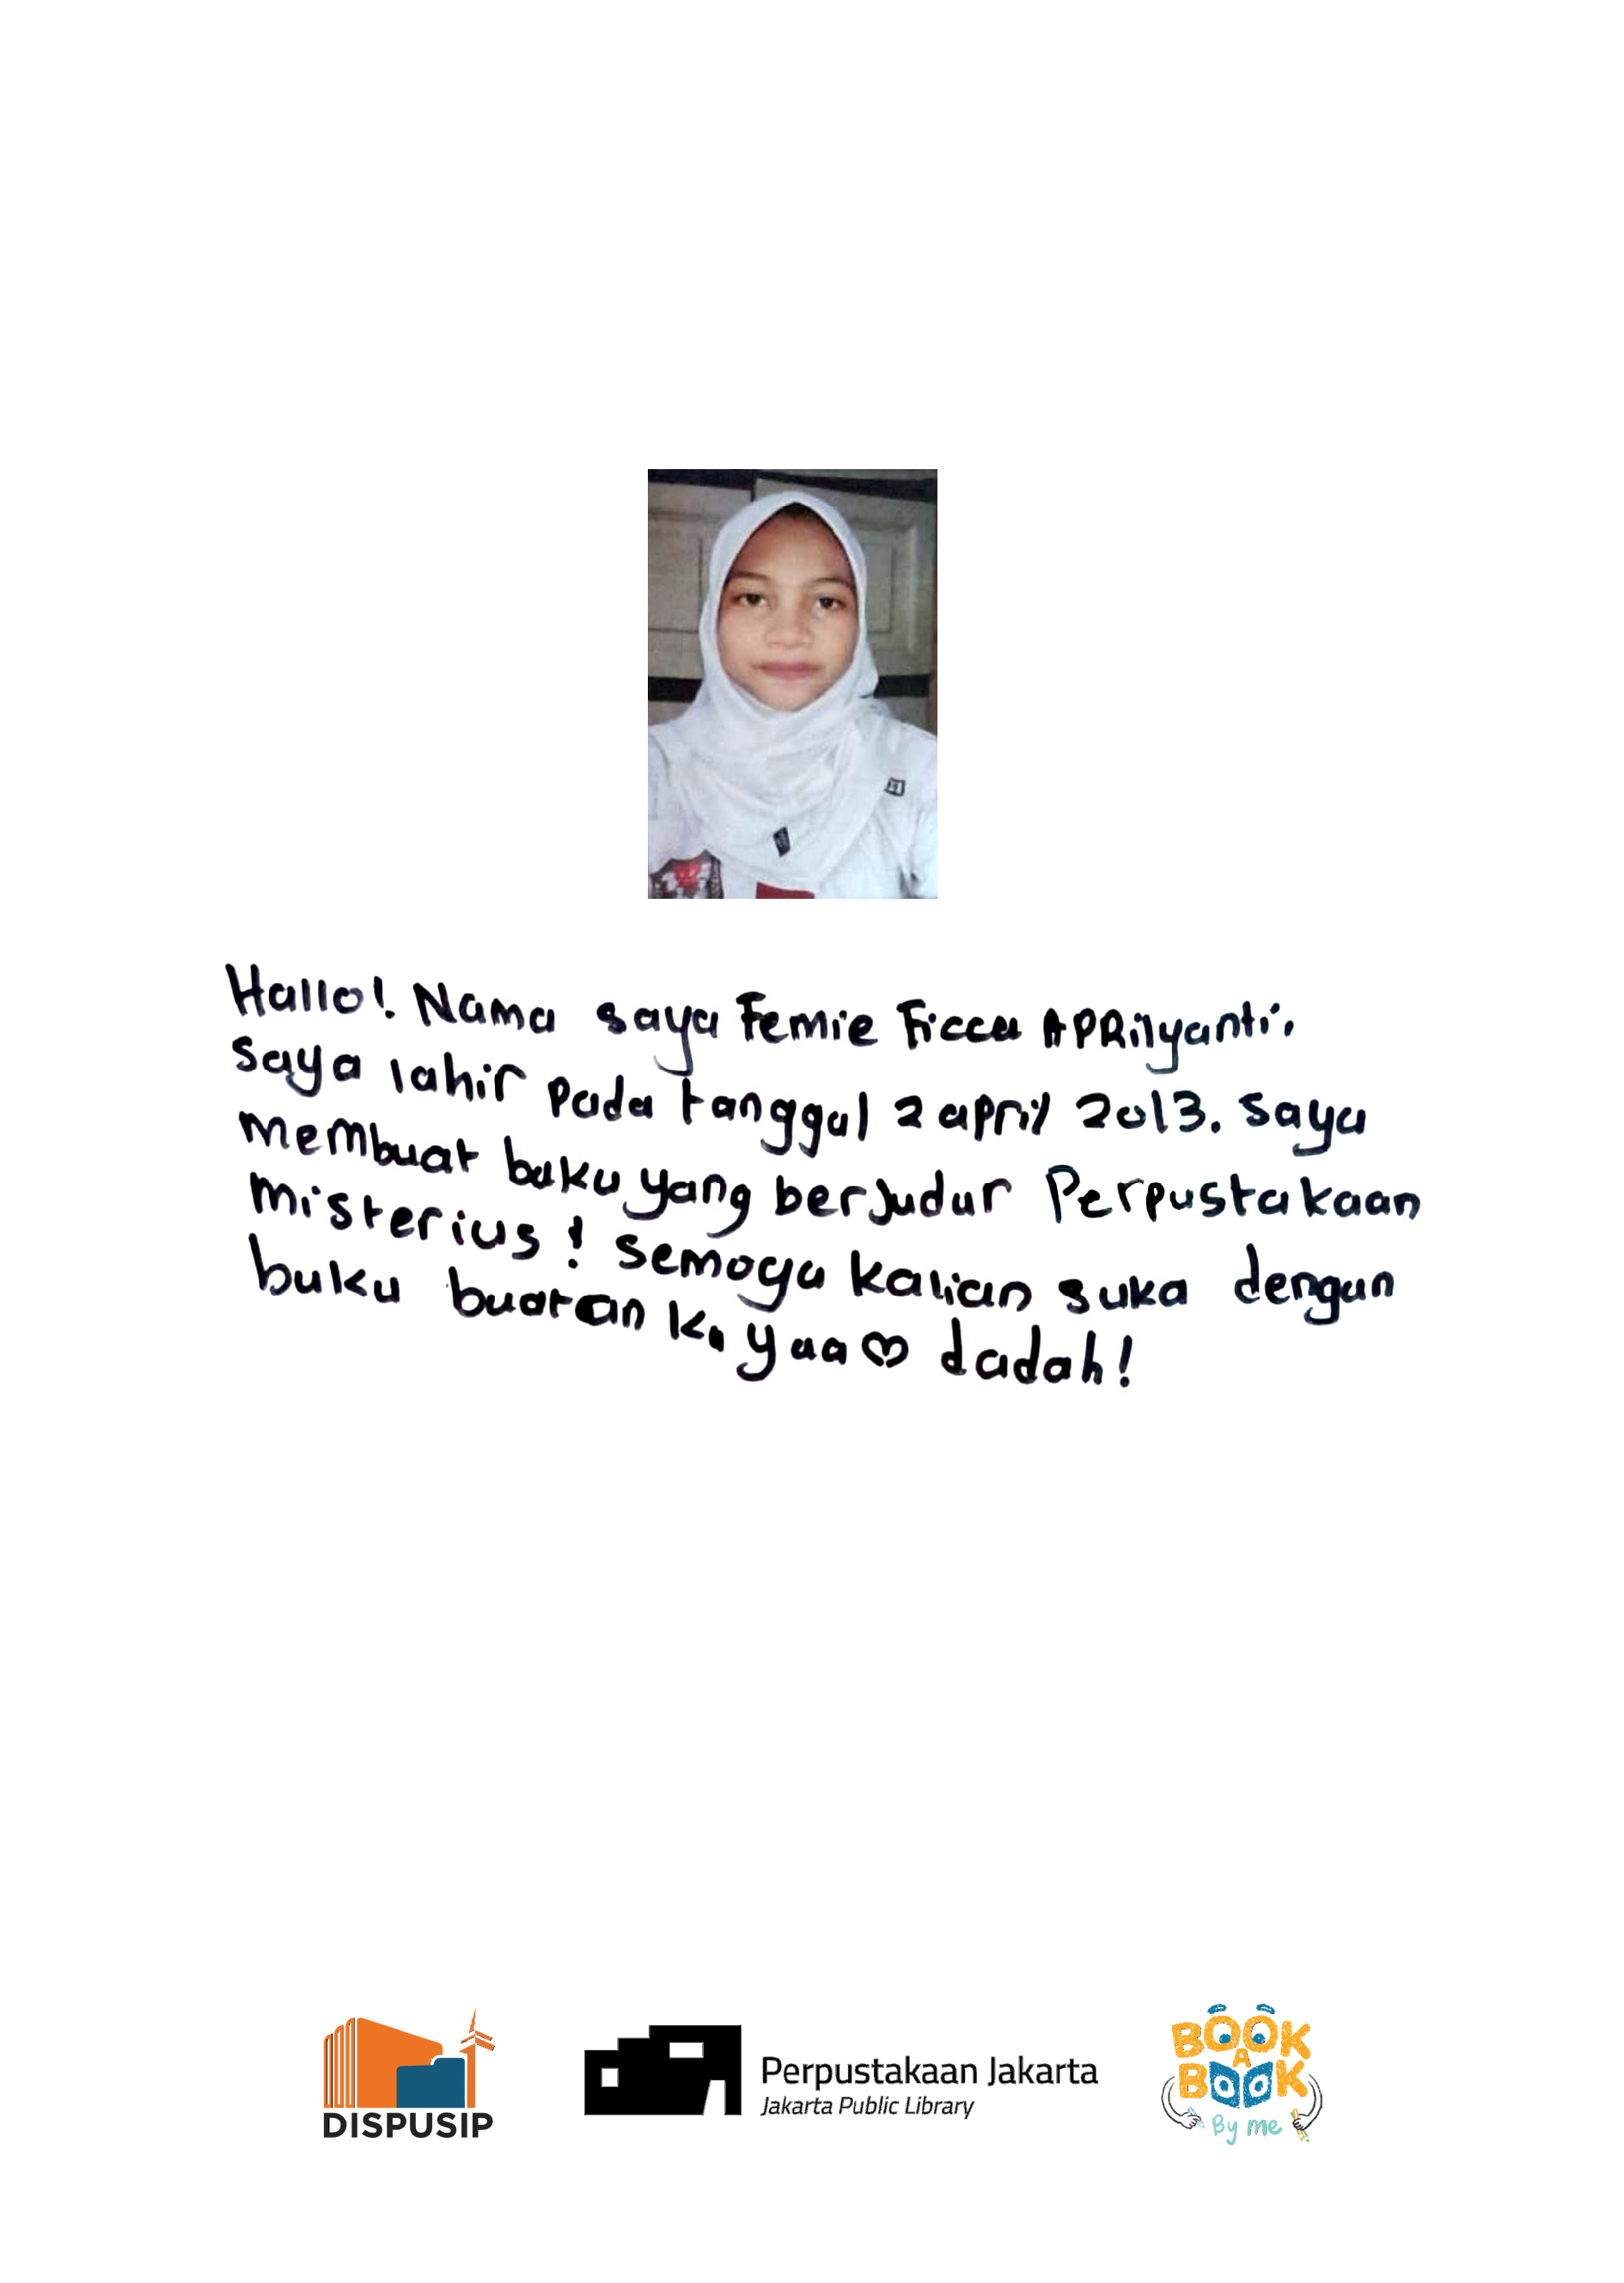 Hallo! Nama saya Femie Ficca APRilyanti.
saya lahir pada tanggal 2 april 2013. saya
membuat buku yang berjudur Perpustakaan
misterius! semoga kalian suka dengan
buku buatan ku yaa♡ dadah!
DISPUSIP
Perpustakaan Jakarta
Jakarta Public Library
BOOK
A
BOOK
By me